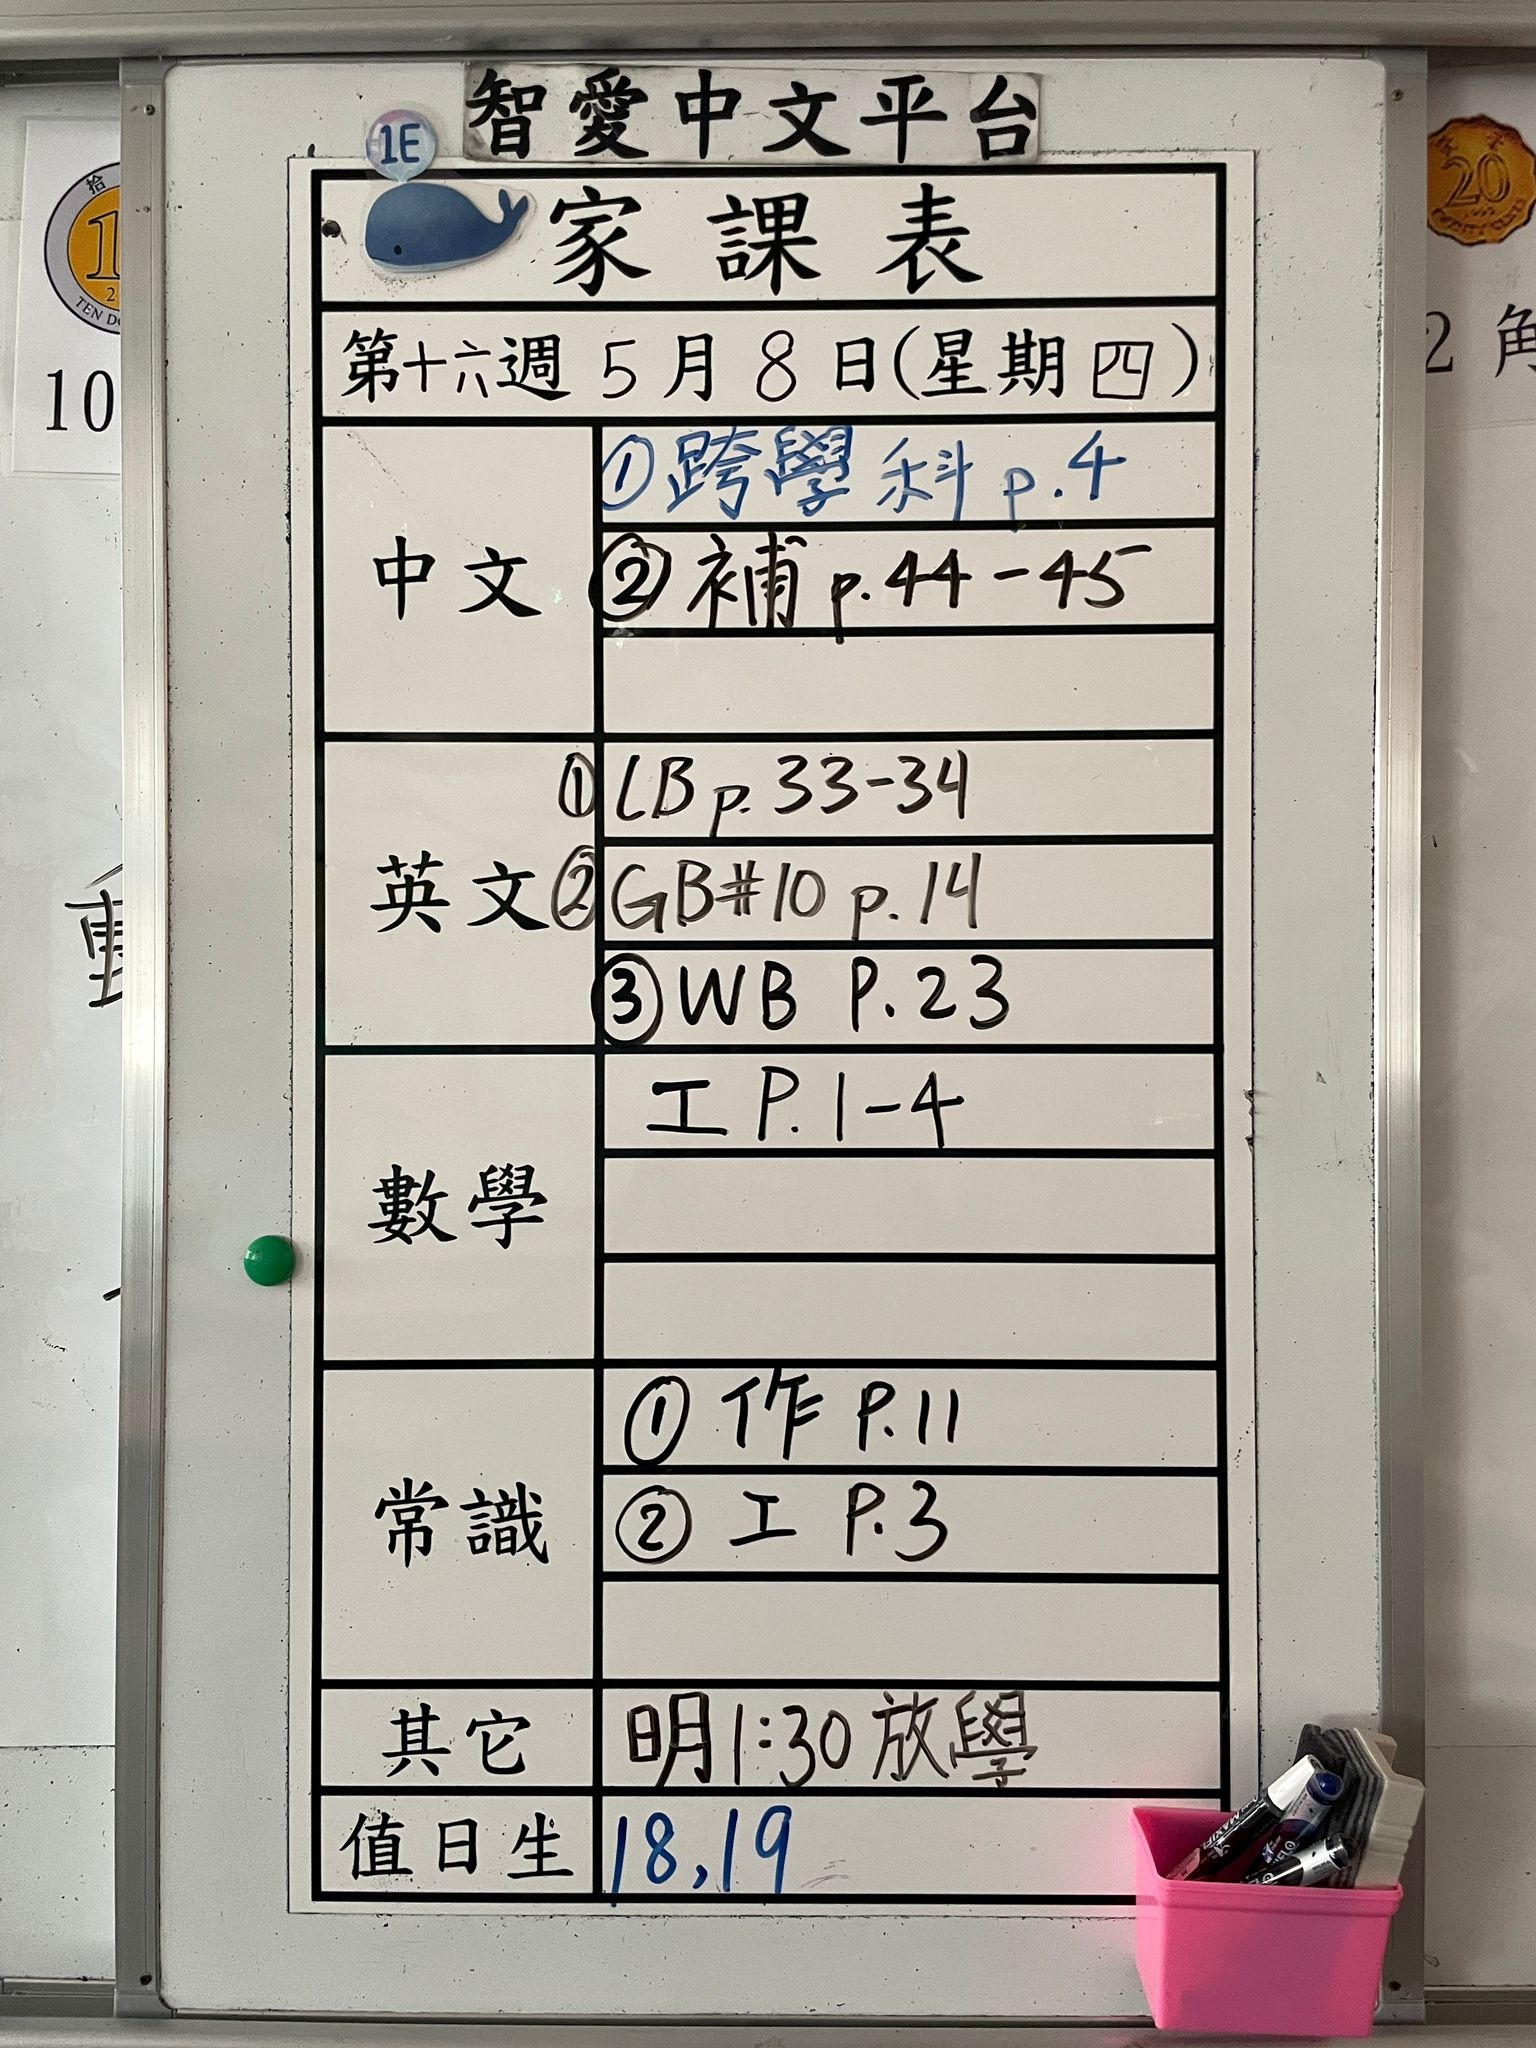 智愛中文平台
1E
家課表
第十六週 5月8日(星期四)
中文
①跨學科 p.4
②補 p.44-45
英文
①LB p.33-34
②GB#10 p.14
③WB P.23
數學
工 P.1-4
常識
①作 P.11
②工 P.3
其它
明1:30放學
值日生
18,19
拾
TEN
10
20
2角